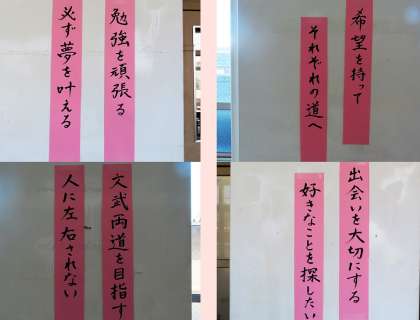 勉強を頑張る
必ず夢を叶える
希望を持って
それぞれの道へ
文武両道を目指す
人に左右されない
出会いを大切にする
好きなことを探したい